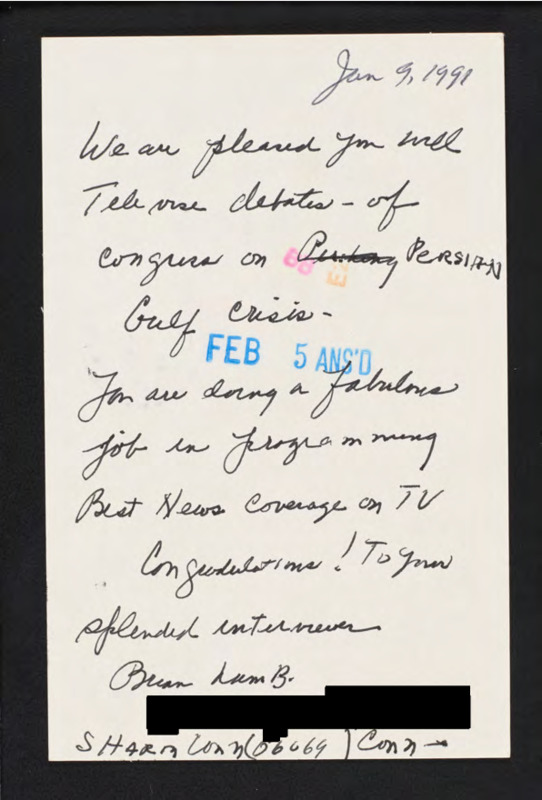 Jan 9, 1991
We are pleased you will
Televise debates - of
Congress on PERSIAN
Gulf Crisis -
FEB 5 ANS'D
You are doing a fabulous
job in programming
Best News Coverage on TV
Congradulations! To your
splended interviewer
Brian Lamb.
SHARON Conn (06069) Conn -